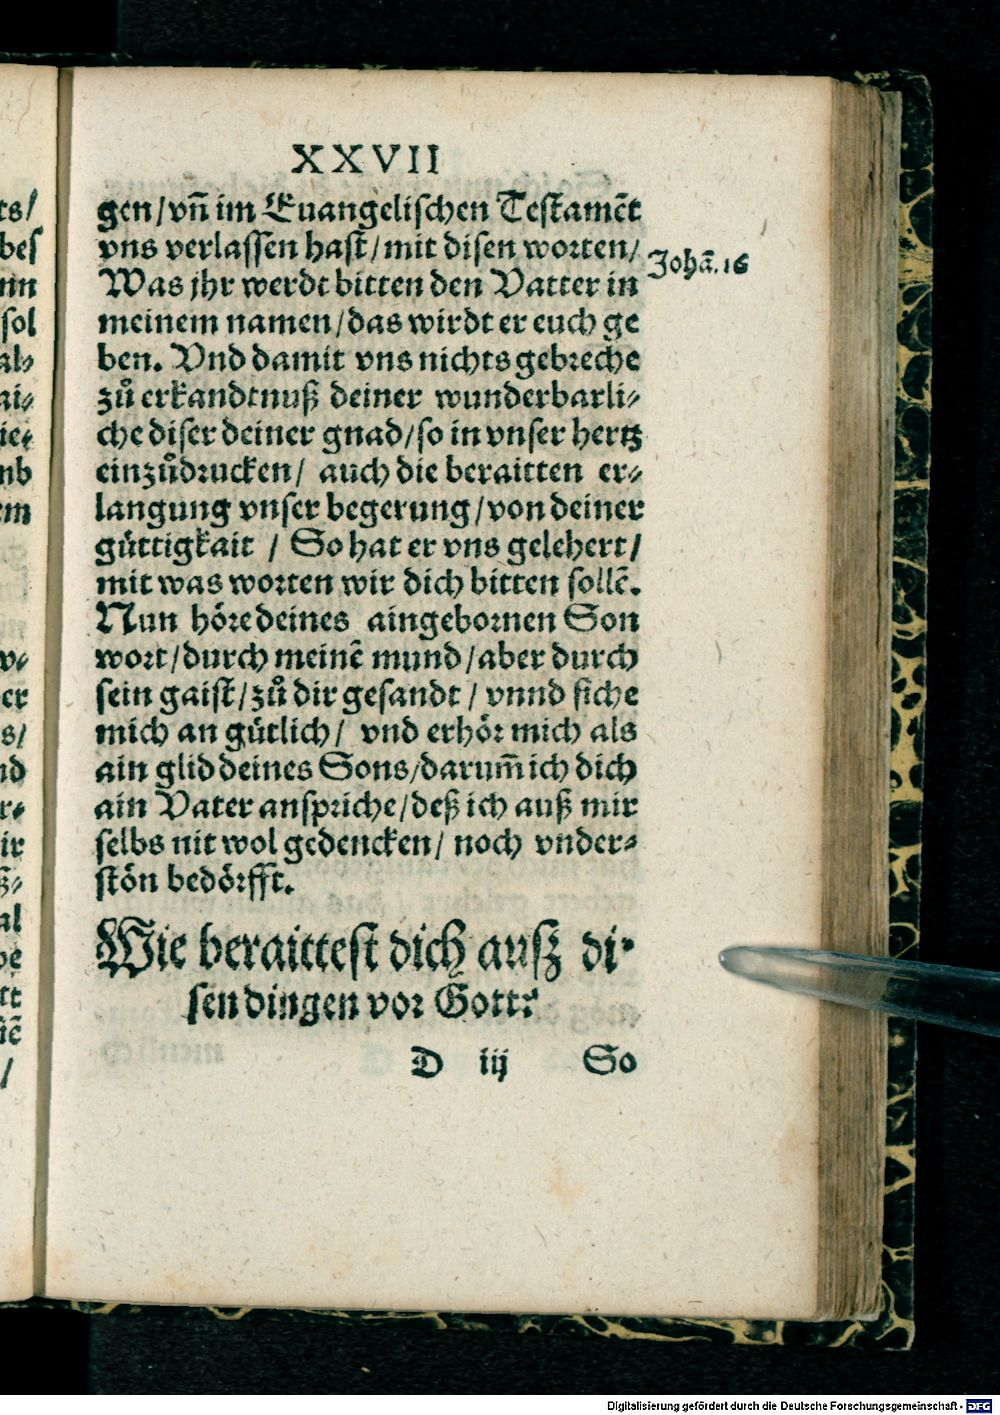 XXVII
gen/ vñ im Euangelischen Testamẽt
vns verlassen hast/ mit disen worten/
Johã. 16
Was jhr werdt bitten den Vatter in
meinem namen/ das wirdt er euch ge
ben. Vnd damit vns nichts gebreche
zů erkandtnuß deiner wunderbarli-
che diser deiner gnad/ so in vnser hertz
einzůdrucken/ auch die beraitten er-
langung vnser begerung/ von deiner
güttigkait / So hat er vns gelehert/
mit was worten wir dich bitten sollẽ.
Nun höre deines aingebornen Son
wort/ durch meinẽ mund/ aber durch
sein gaist/ zů dir gesandt / vnnd siche
mich an gütlich/ vnd erhör mich als
ain glid deines Sons/ darum̃ ich dich
ain Vater anspriche/ deß ich auß mir
selbs nit wol gedencken/ noch vnder-
stön bedörfft.
Wie beraittest dich ausz di-
sen dingen vor Gott?
D iij So
ts/
bes
nn
sol
al-
ai-
ie-
nb
em
v-
er
s/
nd
r-
ir
ß-
al
be
tt
iẽ
/
Digitalisierung gefördert durch die Deutsche Forschungsgemeinschaft - DFG